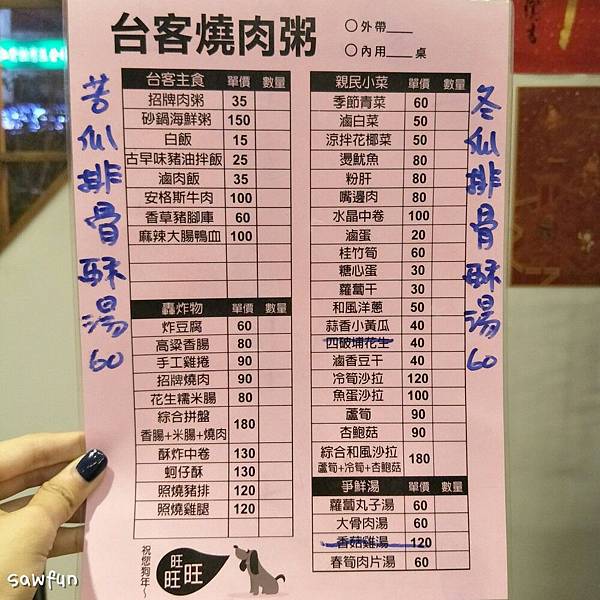 台客燒肉粥
○外帶____
○內用____桌
苦仙排骨酥湯60
冬仙排骨酥湯60
台客主食 單價 數量
招牌肉粥 35
砂鍋海鮮粥 150
白飯 15
古早味豬油拌飯 25
滷肉飯 35
安格斯牛肉 100
香草豬腳庫 60
麻辣大腸鴨血 100
轟炸物 單價 數量
炸豆腐 60
高粱香腸 80
手工雞捲 90
招牌燒肉 90
花生糯米腸 80
綜合拼盤
香腸+米腸+燒肉 180
酥炸中卷 130
蚵仔酥 130
照燒豬排 120
照燒雞腿 120
祝您狗年~
旺旺旺
親民小菜 單價 數量
季節青菜 60
滷白菜 50
涼拌花椰菜 50
燙魷魚 80
粉肝 80
嘴邊肉 80
水晶中卷 100
滷蛋 20
桂竹筍 60
糖心蛋 30
蘿蔔干 30
和風洋蔥 50
蒜香小黃瓜 40
四破埔花生 40
滷香豆干 40
冷筍沙拉 120
魚蛋沙拉 100
蘆筍 90
杏鮑菇 90
綜合和風沙拉
蘆筍+冷筍+杏鮑菇 180
爭鮮湯 單價 數量
蘿蔔丸子湯 60
大骨肉湯 60
香菇雞湯 120
春筍肉片湯 60
sawfun